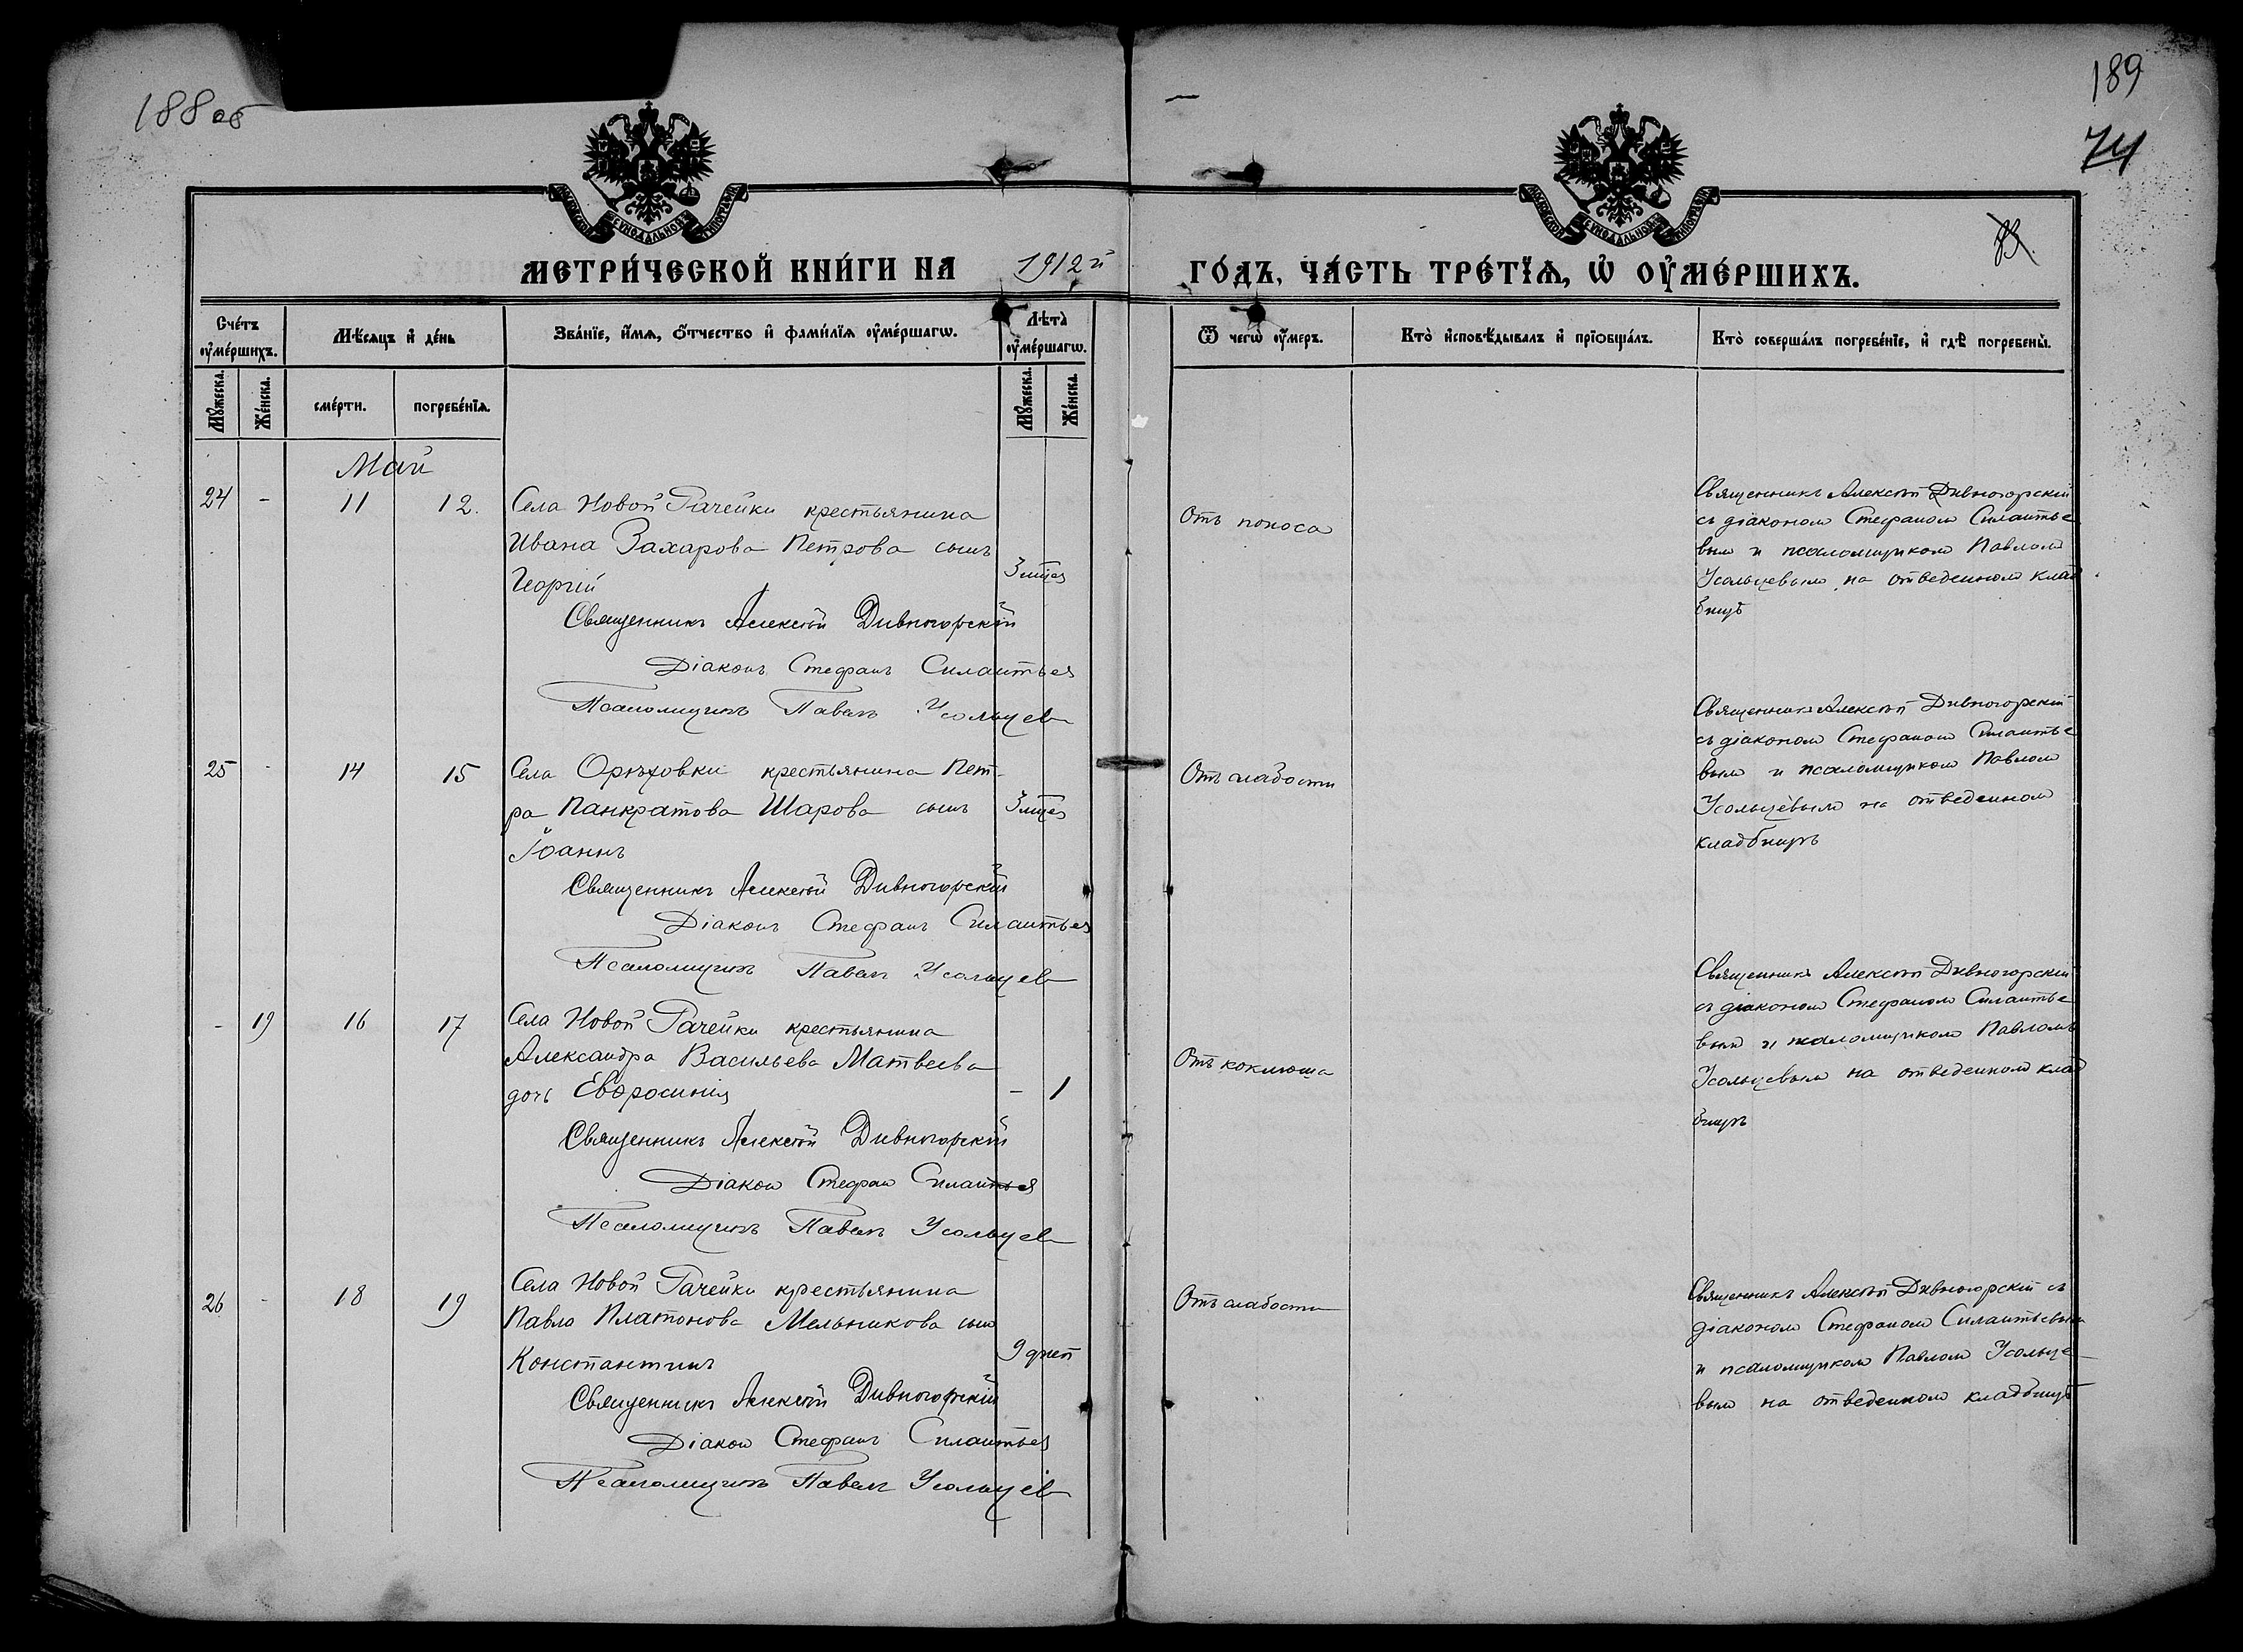 188 об
189
74
МОСКОВСКОЙ СѴНОДАЛЬНОЙ ТИПОГРАФІИ
МОСКОВСКОЙ СѴНОДАЛЬНОЙ ТИПОГРАФІИ
МЕТРИ́ЧЕСКОЙ КНИ́ГИ НА 1912й ГО́ДЪ, ЧА́СТЬ ТРЕ́ТЇѦ, Ѡ҆ ОУ҆МЕ́РШИХЪ.
Сче́тъ оу҆ме́ршихъ.
Мѣ́сяцъ и҆ де́нь
Зва́нїе, и҆́мѧ, ѻ҆́тчество и҆ фами́лїѧ оу҆ме́ршагѡ.
Лѣта̀ оу҆ме́ршагѡ.
Ѿ чегѡ̀ оу҆́меръ.
Кто̀ и҆сповѣ́дывалъ и҆ прїѡбща́лъ.
Кто̀ соверша́лъ погребе́нїе, и҆ гдѣ̀ погребены̀.
Мꙋ́жеска.
Же́нска.
сме́рти.
погребе́нїѧ.
Мꙋ́жеска.
Же́нска.
Май
24 - 11 12. Села Новой Рачейки крестьянина
Ивана Захарова Петрова сынъ
Георгій 3 мцея
Священникъ Алексѣй Дивногорскій
Діаконъ Стефанъ Силантьев
Псаломщикъ Павелъ Усольцев
Отъ поноса
Священникъ Алексѣй Дивногорскій
съ діакономъ Стефаномъ Силантье
вымъ и псаломщикомъ Павломъ
Усольцевымъ на отведенномъ клад
бищѣ
25 - 14 15 Села Орѣховки крестьянина Пет-
ра Панкратова Шарова сынъ 3 мцея
Іоаннъ
Священникъ Алексѣй Дивногорскій
Діаконъ Стефанъ Силантьев
Псаломщикъ Павелъ Усольцев
Отъ слабости
Священникъ Алексѣй Дивногорскій
съ діакономъ Стефаномъ Силантье
вымъ и псаломщикомъ Павломъ
Усольцевымъ на отведенномъ
кладбищѣ
- 19 16 17 Села Новой Рачейки крестьянина
Александра Васильева Матвеева
дочь Евфросинія - 1
Священникъ Алексѣй Дивногорскій
Діакон Стефан Силантьев
Псаломщикъ Павелъ Усольцев
Отъ коклюша
Священникъ Алексѣй Дивногорскій
съ діакономъ Стефаномъ Силантье
вымъ и псаломщикомъ Павломъ
Усольцевымъ на отведенномъ клад
бищѣ
26 - 18 19 Села Новой Рачейки крестьянина
Павла Платонова Мельникова сынъ
Константинъ 9 дней
Священникъ Алексѣй Дивногорскій
Діакон Стефанъ Силантьев
Псаломщикъ Павелъ Усольцев
Отъ слабости
Священникъ Алексѣй Дивногорскій съ
діакономъ Стефаномъ Силантьевымъ
и псаломщикомъ Павломъ Усольце
вымъ на отведенномъ кладбищѣ